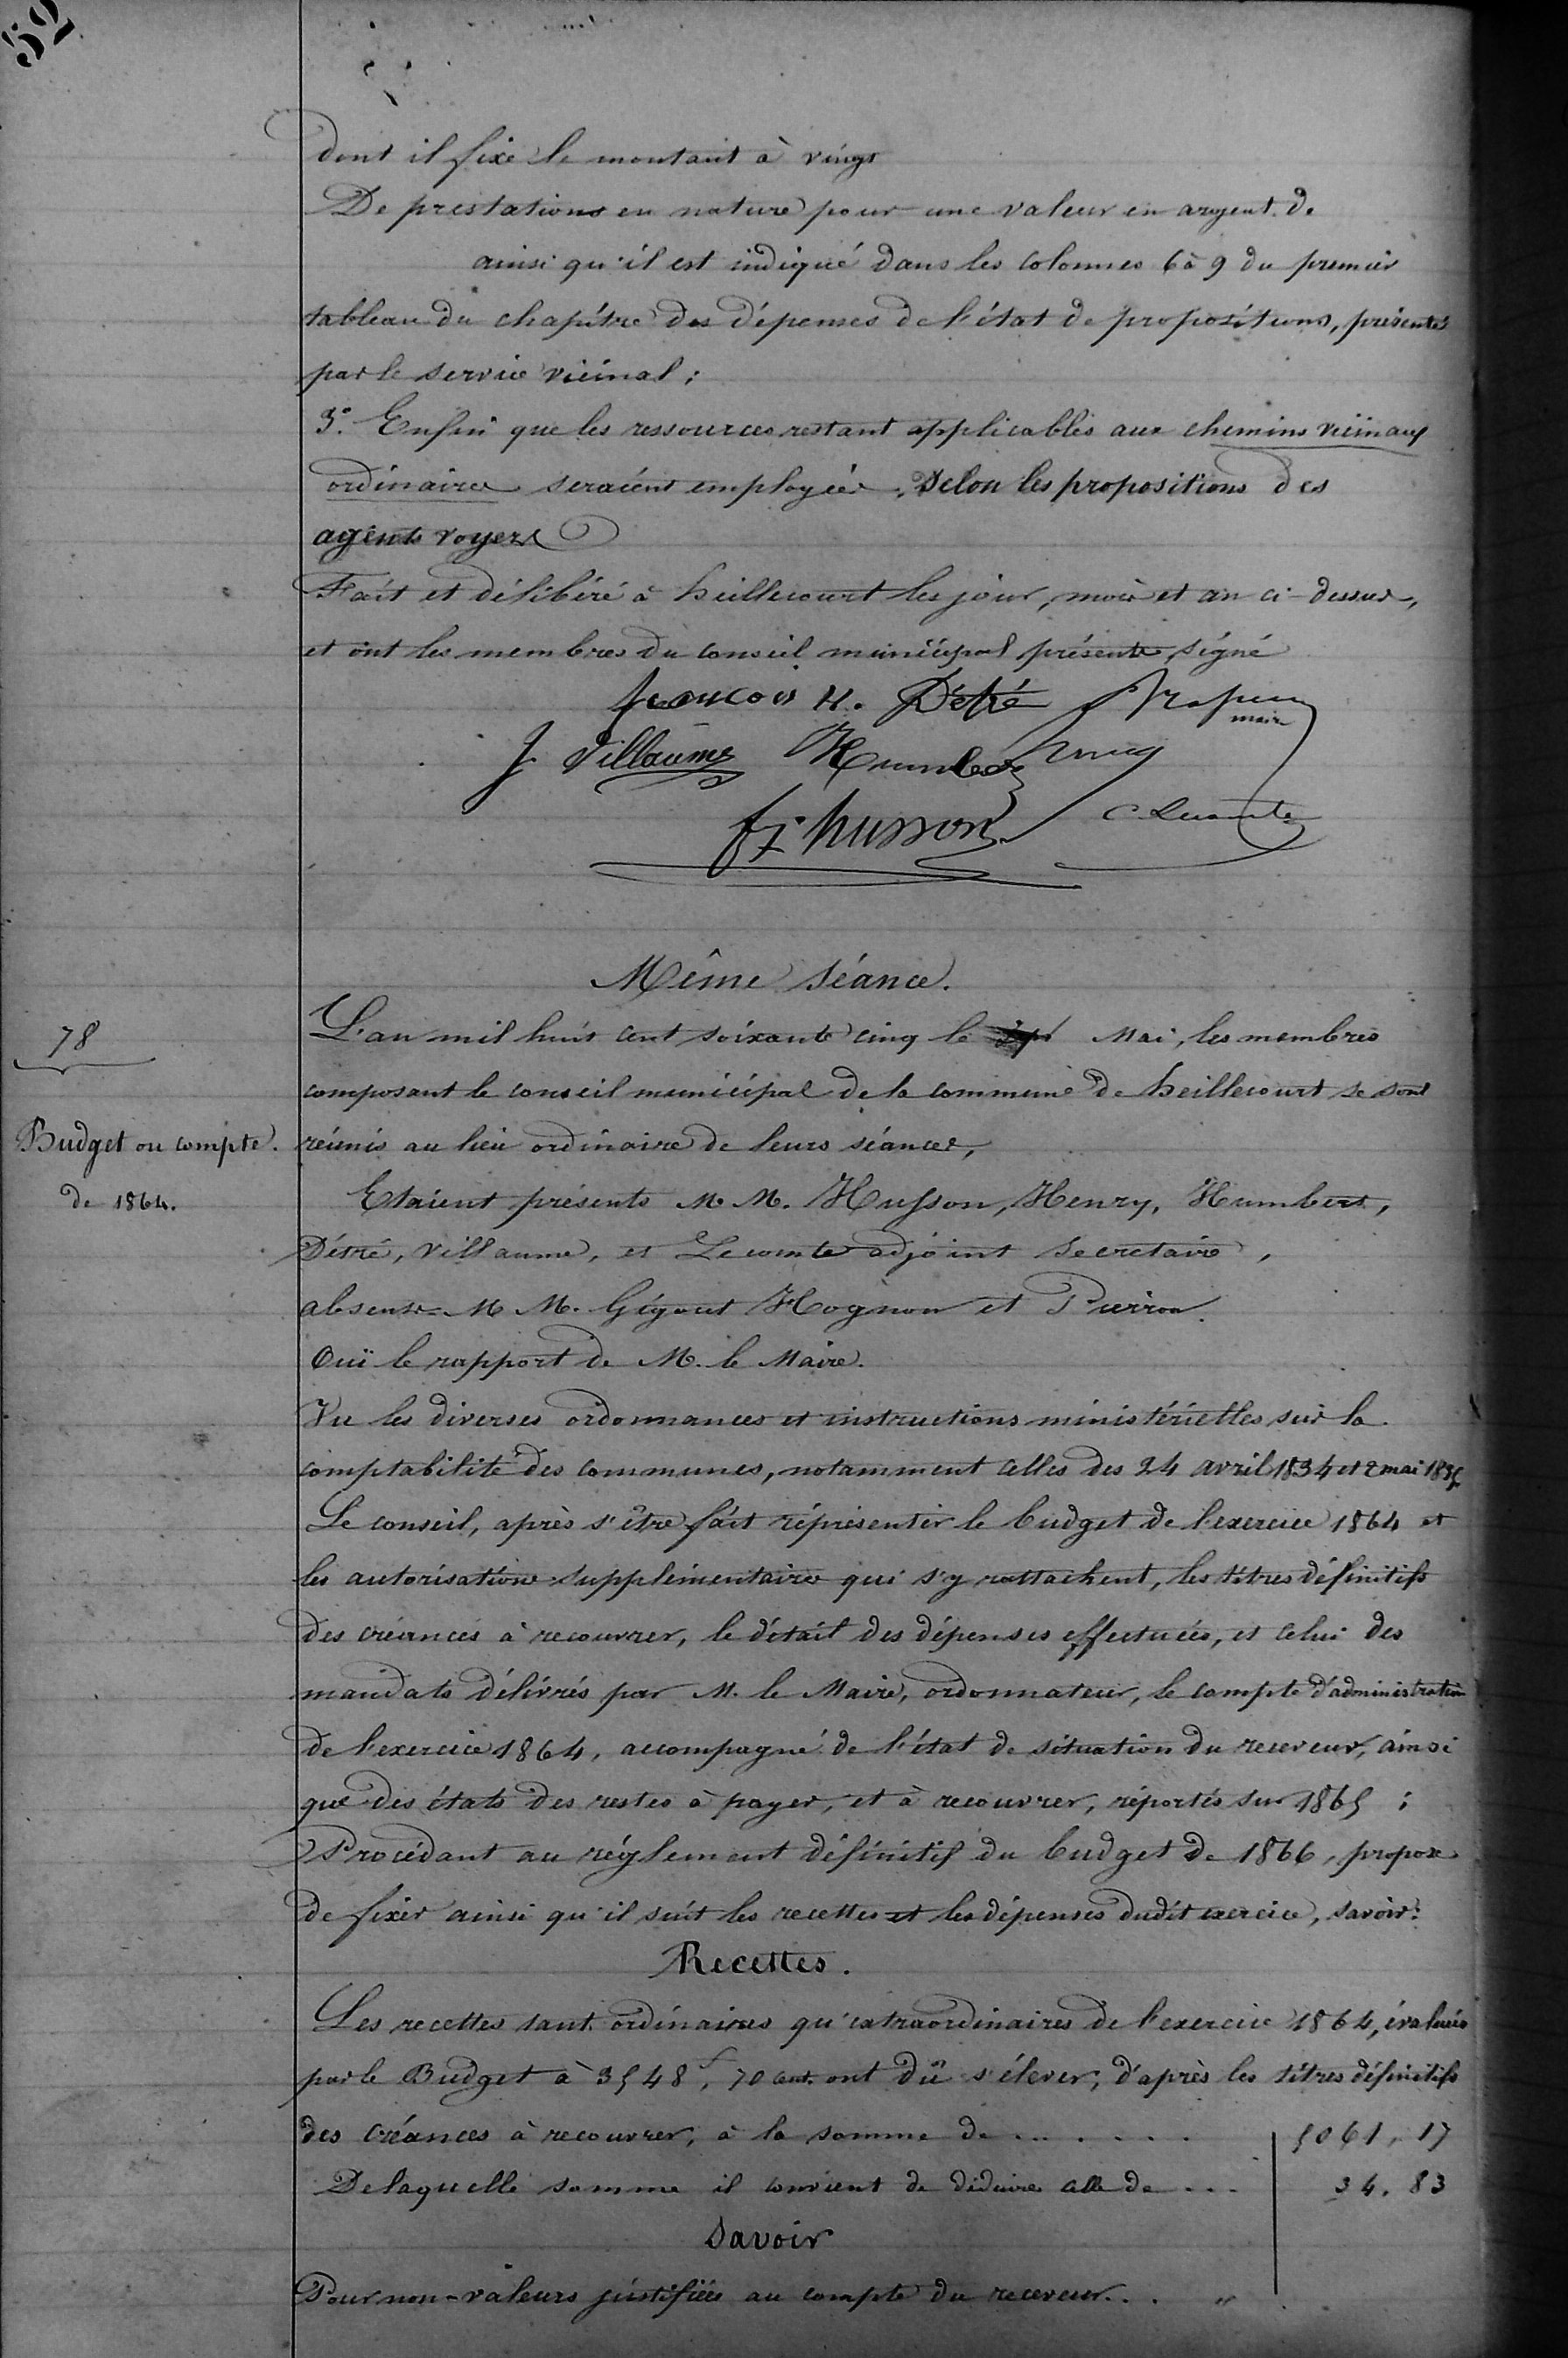 52
dont il fixe le montant à vingt
De prestations en nature pour une valeur en argent de
ainsi qu'il est indiqué dans les colonnes 6 à 9 du premier
tableau du chapître des dépenses de l'état de propositions, présentés
par le service vicinal ;
3°. Enfin que les ressources restant applicables aux chemins vicinaux
ordinaires seraient employées, Selon les propositions des
agents voyers
Fait et délibéré à heillecourt les jour, mois et an ci-dessus,
et ont les membres du conseil municipal présents signé
françois H. Détré
maire
J. Villaume Humbert
fx husson C. Lecomte
Même Séance.
78
L'an mil huit cent soixante cinq le Mai, les membres
composant le conseil municipal de la commune de heillecourt se sont
Budget ou compte.
de 1864.
réunis au lieu ordinaire de leurs séances,
Etaient présents M. M. Husson, Henry, Humbert,
Détré, Villaume, et Lecomte adjoint Secretaire,
absens M M. Gégout Hognon et Pierron.
Ouï le rapport de M. le Maire.
Vu les diverses ordonnances et instructions ministérielles sur la
comptabilité des communes, notamment celles des 24 avril 1834 et 2 mai 1835
Le conseil, après s'être fait réprésenter le budget de l'exercice 1864 et
les autorisations supplémentaires qui s'y rattachent, les titres définitifs
des créances à recouvrer, le détail des dépenses effectuées, et celui des
mandats délivrés par M. le Maire, ordonnateur, le compte d'administration
de l'exercice 1864, accompagné de l'état de situation du receveur, ainsi
que des états des restes à payer, et à recouvrer, réportés sur 1865 ;
Procédant au réglement définitif du budget de 1866, propose
de fixer ainsi qu'il suit les recettes et les dépenses dudit exercice, savoir :
Recettes.
Les recettes tant ordinaires qu'extraordinaires de l'exercice 1864, évaluées
par le Budget à 3548 f, 70 cent. ont dû s'élever, d'après les titres définitifs
des créances à recouvrer, à la somme de ...... 5061, 17
De laquelle somme il convient de déduire celle de ... 34. 83
Savoir
Pour non-valeurs justifiées au compte du receveur... "